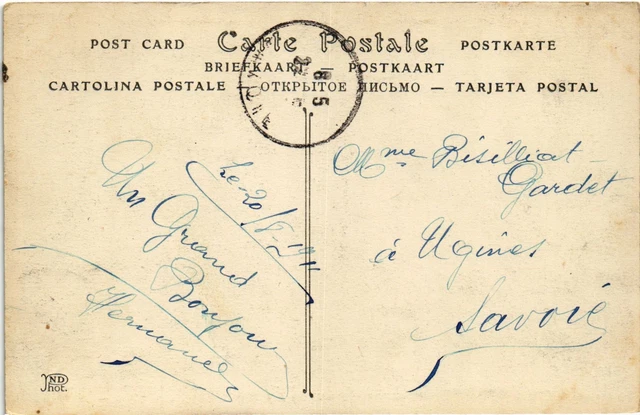 POST CARD Carte Postale POSTKARTE
BRIEFKAART | POSTKAART
CARTOLINA POSTALE — ОТКРЫТОЕ ПИСЬМО — TARJETA POSTAL
8 5
Le 20/8 1911
Un Grand
Bonjour
Mme Bisilliat-
Gardet
à Ugines
Savoie
ND
Phot.